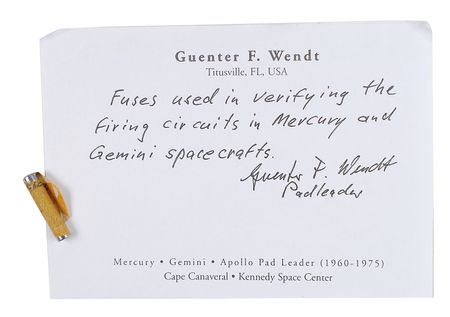 Guenter F. Wendt
Titusville, FL, USA
Fuses used in verifying the
firing circuits in Mercury and
Gemini spacecrafts.
Guenter F. Wendt
Padleader
Mercury • Gemini • Apollo Pad Leader (1960-1975)
Cape Canaveral • Kennedy Space Center